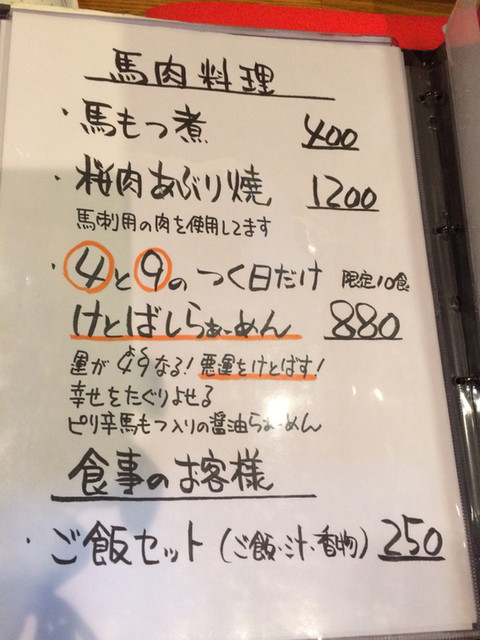 馬肉料理
・馬もつ煮 400
・桜肉あぶり焼 1200
馬刺用の肉を使用してます
・4と9のつく日だけ 限定10食
けとばしらぁーめん 880
運が49なる!悪運をけとばす!
よう
幸せをたぐりよせる
ピリ辛馬もつ入りの醤油らぁーめん
食事のお客様
・ご飯セット(ご飯・汁・香物) 250